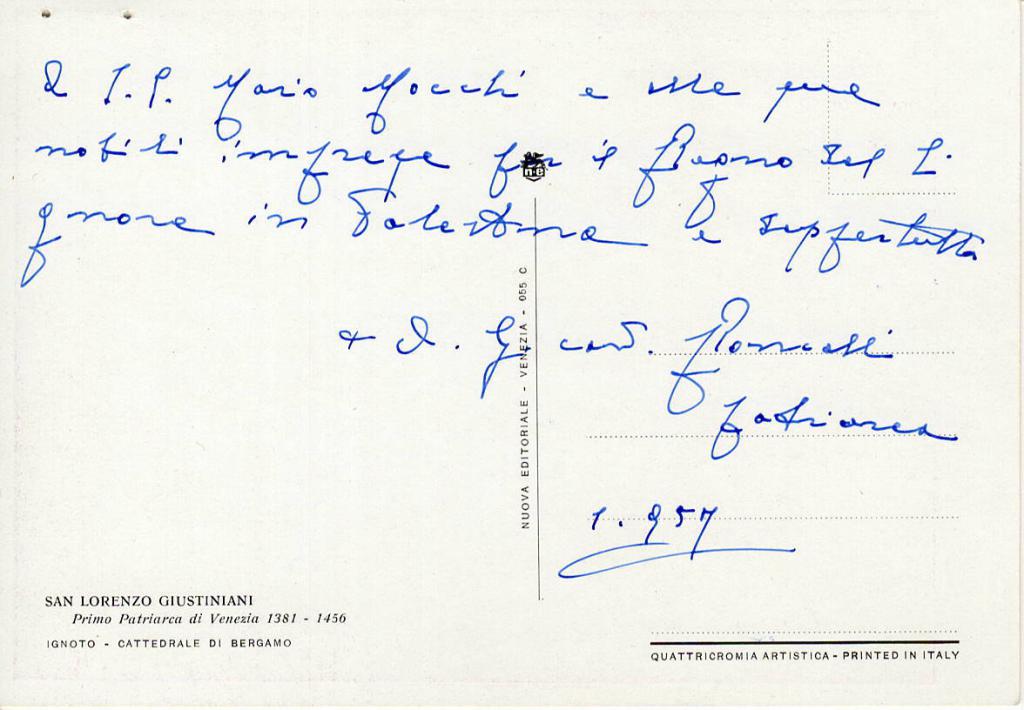 a I. P. Mario Mocchi e alle sue
nobili imprese per il Regno del Si-
gnore in Palestina e dappertutto
+ A. G. card. Roncalli
patriarca
1.957
n-e
NUOVA EDITORIALE - VENEZIA - 055 C
SAN LORENZO GIUSTINIANI
Primo Patriarca di Venezia 1381 - 1456
IGNOTO - CATTEDRALE DI BERGAMO
QUATTRICROMIA ARTISTICA - PRINTED IN ITALY